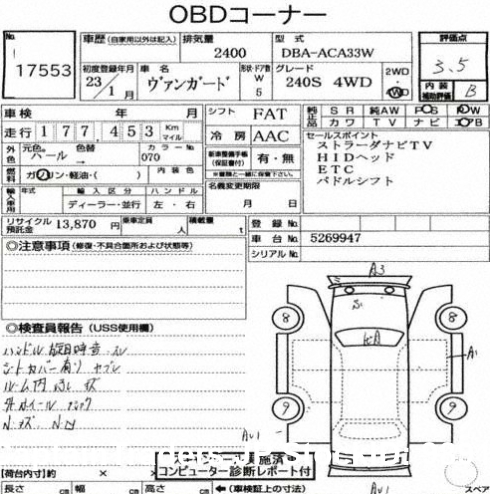 OBDコーナー
No.
17553
車歴 (自家用以外は記入)
排気量
2400
型式
DBA-ACA33W
評価点
3.5
初度登録年月
23/1月
車名
ヴァンガード
形状・ドア数
W
5
グレード
240S 4WD
2WD
内装
補助評価
B
車検 年 月
シフト FAT
純正品
SR 純AW PS PW
カワ TV ナビ エアB
走行 177,453 Km マイル
冷房 AAC
セールスポイント
ストラーダナビTV
HIDヘッド
ETC
パドルシフト
外色
元色
パール
色替
カラーNo
070
新車整備手帳
(保証書付)
有・無
ガソリン・軽油・( )
内装色
名義変更期限
月 日
輸入車用
年式
輸入区分
ディーラー・並行
ハンドル
左・右
リサイクル預託金 13,870 円
乗車定員 人
積載量 t
登録No.
車台No. 5269947
シリアルNo.
◎注意事項 (修復・不具合箇所および状態等)
A3
A1
8
8
9
9
◎検査員報告 (USS使用欄)
施済
コンピューター診断レポート付
【荷台内寸】約 × ×
長さ cm 幅 cm 高さ cm
←(車検証上の寸法)
スペア